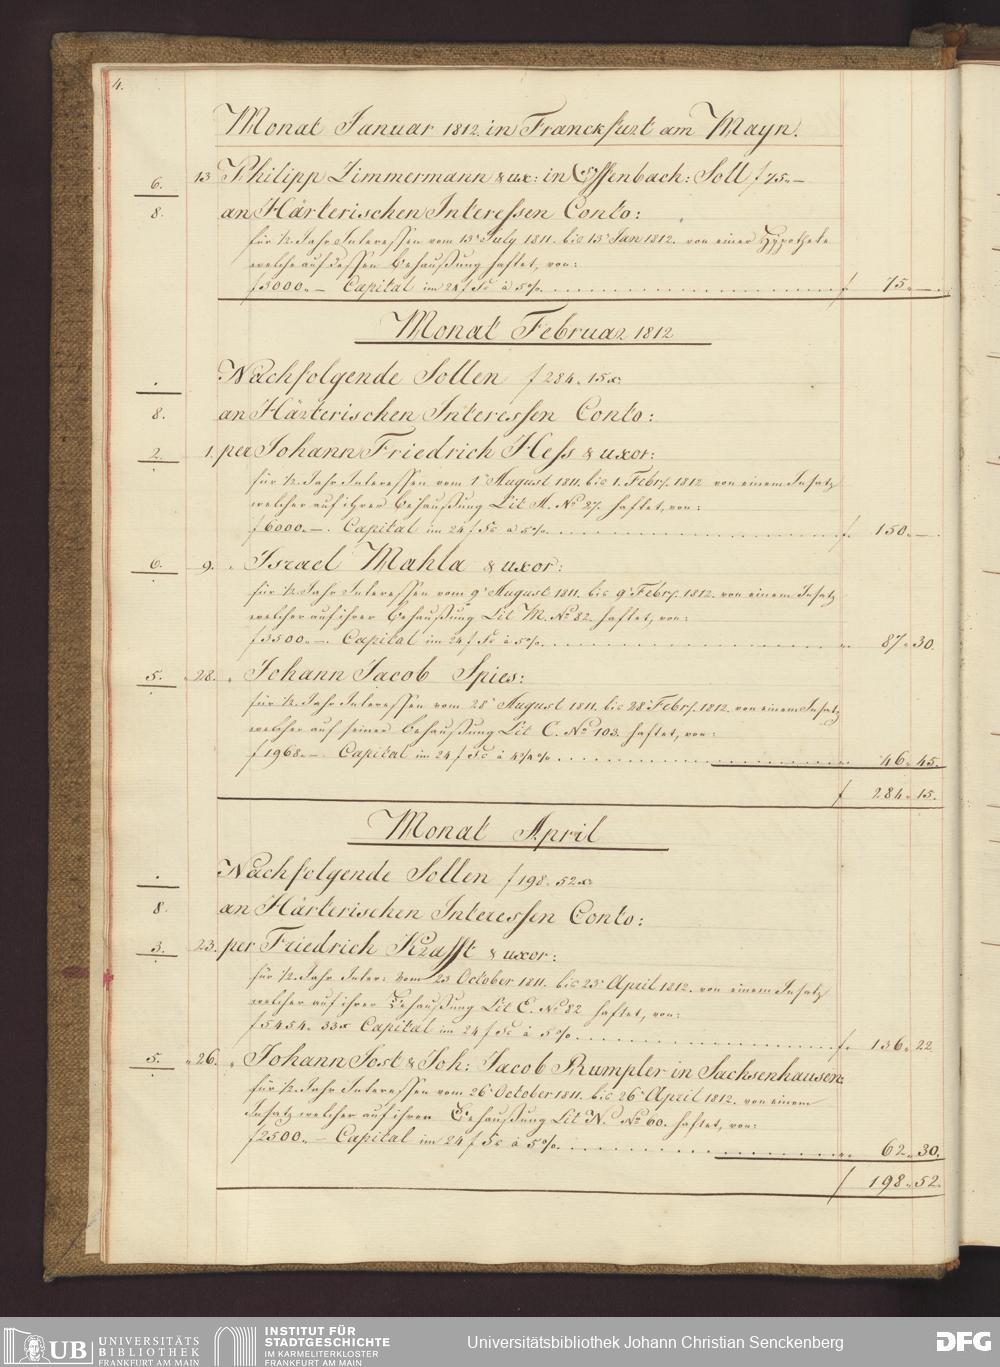 4.
Monat Januar 1812. in Franckfurt am Mayn.
6. 13 Philipp Zimmermann & ux: in Offenbach: Soll f 75.–
8. an Härterischen Interessen Conto:
für 1/2 Jahr Interessen vom 13' July 1811. bis 13' Jan 1812. von einer Hypotheke
welche auf dessen Behaußung haftet, von:
f 3000.– Capital im 24 f Fs à 5 % f 75.–.
Monat Februar 1812
. Nachfolgende Sollen f 284. 15 x:
8. an Härterischen Interessen Conto:
2. 1. per Johann Friedrich Hess & uxor:
für 1/2 Jahr Interessen vom 1' August 1811. bis 1. Febr. 1812 von einem Insatz
welcher auf ihrer Behaußung Lit A. No 87. haftet, von:
f 6000.–. Capital im 24 f Fs à 5 % f. 150.–.
6. 9. „ Israel Mahla & uxor:
für 1/2 Jahr Interessen vom 9' August 1811. bis 9' Febr. 1812. von einem Insatz
welcher auf ihrer Behaußung Lit M. No 82. haftet, von:
f 3500.–. Capital im 24 f Fs à 5 % „ 87. 30.
5. „ 28. „ Johann Jacob Spies:
für 1/2 Jahr Interessen vom 28' August 1811. bis 28' Febr. 1812. von einem Insatz
welcher auf seiner Behaußung Lit C. No 103. haftet, von:
f 1968.–. Capital im 24 f Fs à 4 3/4 % „ 46. 45.
f 284. 15.
Monat April
. Nachfolgende Sollen f 198. 52 x:
8. an Härterischen Interessen Conto:
3. 23. per Friedrich Krafft & uxor:
für 1/2 Jahr Inter: vom 23 October 1811. bis 23' April 1812. von einem Insatz
welcher auf ihrer Behaußung Lit E. No 82 haftet, von:
f 5454. 33 x Capital im 24 f Fs à 5 % f. 136. 22.
5. „ 26. „ Johann Jost & Joh: Jacob Rumpler in Sachsenhausen:
für 1/2 Jahr Interessen vom 26' October 1811. bis 26' April 1812. von einem
Insatz welcher auf ihrer Behaußung Lit N. No 60. haftet, von:
f 2500.– Capital im 24 f Fs à 5 % „ 62. 30.
f 198. 52.
UB UNIVERSITÄTS BIBLIOTHEK FRANKFURT AM MAIN
INSTITUT FÜR STADTGESCHICHTE IM KARMELITERKLOSTER FRANKFURT AM MAIN
Universitätsbibliothek Johann Christian Senckenberg
DFG